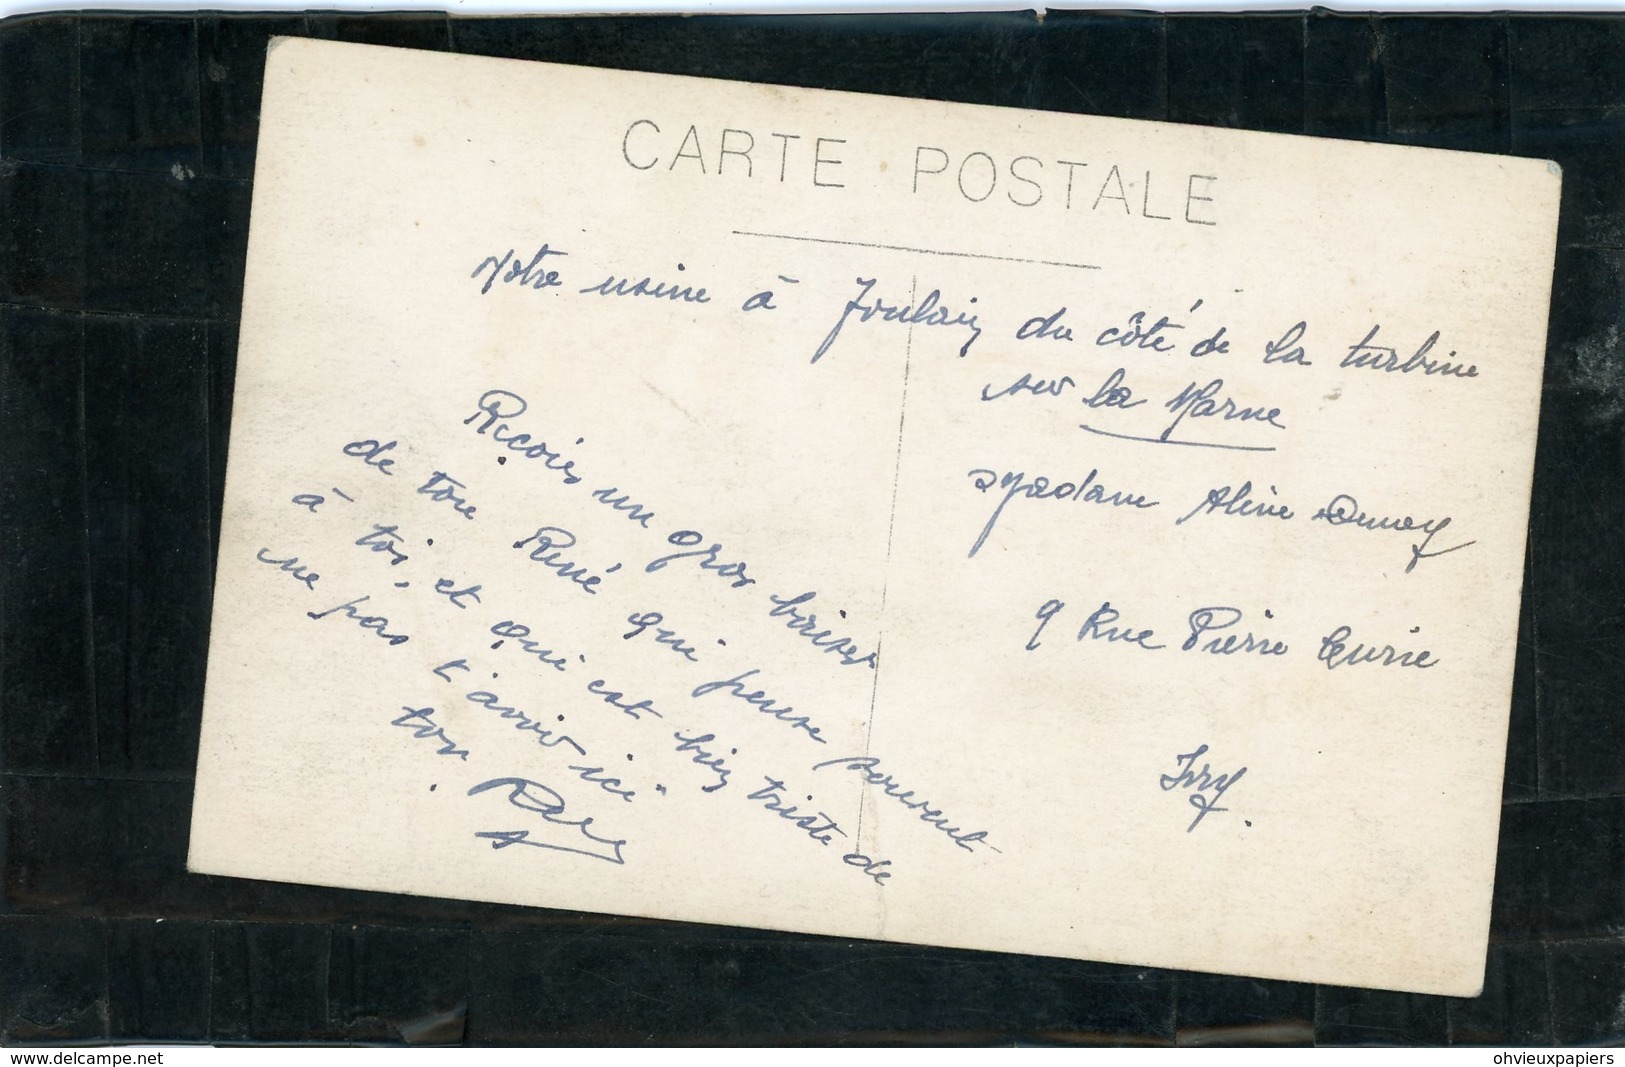 CARTE POSTALE
Notre usine à Joulain du côté de la turbine
sur la Marne
Reçois un gros baiser
de ton René qui pense souvent
à toi, et qui est bien triste de
ne pas t'avoir ici.
ton René
Madame Aline
9 Rue Pierre Curie
Ivry.
delcampe.net
ohvieuxpapiers